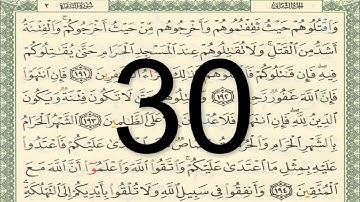 الجزء الثاني سورة البقرة ٢
وَاقْتُلُوهُمْ حَيْثُ ثَقِفْتُمُوهُمْ وَأَخْرِجُوهُم مِّنْ حَيْثُ أَخْرَجُوكُمْ وَالْفِتْنَةُ
أَشَدُّ مِنَ الْقَتْلِ وَلَا تُقَاتِلُوهُمْ عِندَ الْمَسْجِدِ الْحَرَامِ حَتَّىٰ يُقَاتِلُوكُمْ
فِيهِ فَإِن قَاتَلُوكُمْ ١٩١ فَإِنِ انتَهَوْا
فَإِنَّ اللَّهَ غَفُورٌ رَّحِيمٌ ١٩٢ حَتَّىٰ لَا تَكُونَ فِتْنَةٌ وَيَكُونَ
الدِّينُ لِلَّهِ فَإِنِ انتَهَوْا عَلَى الظَّالِمِينَ ١٩٣ الشَّهْرُ الْحَرَامُ
بِالشَّهْرِ الْحَرَامِ وَالْحُرُمَاتُ اعْتَدَىٰ عَلَيْكُمْ فَاعْتَدُوا
عَلَيْهِ بِمِثْلِ مَا اعْتَدَىٰ عَلَيْكُمْ وَاتَّقُوا اللَّهَ وَاعْلَمُوا أَنَّ اللَّهَ مَعَ
الْمُتَّقِينَ ١٩٤ وَأَنفِقُوا فِي سَبِيلِ اللَّهِ وَلَا تُلْقُوا بِأَيْدِيكُمْ إِلَى التَّهْلُكَةِ
30